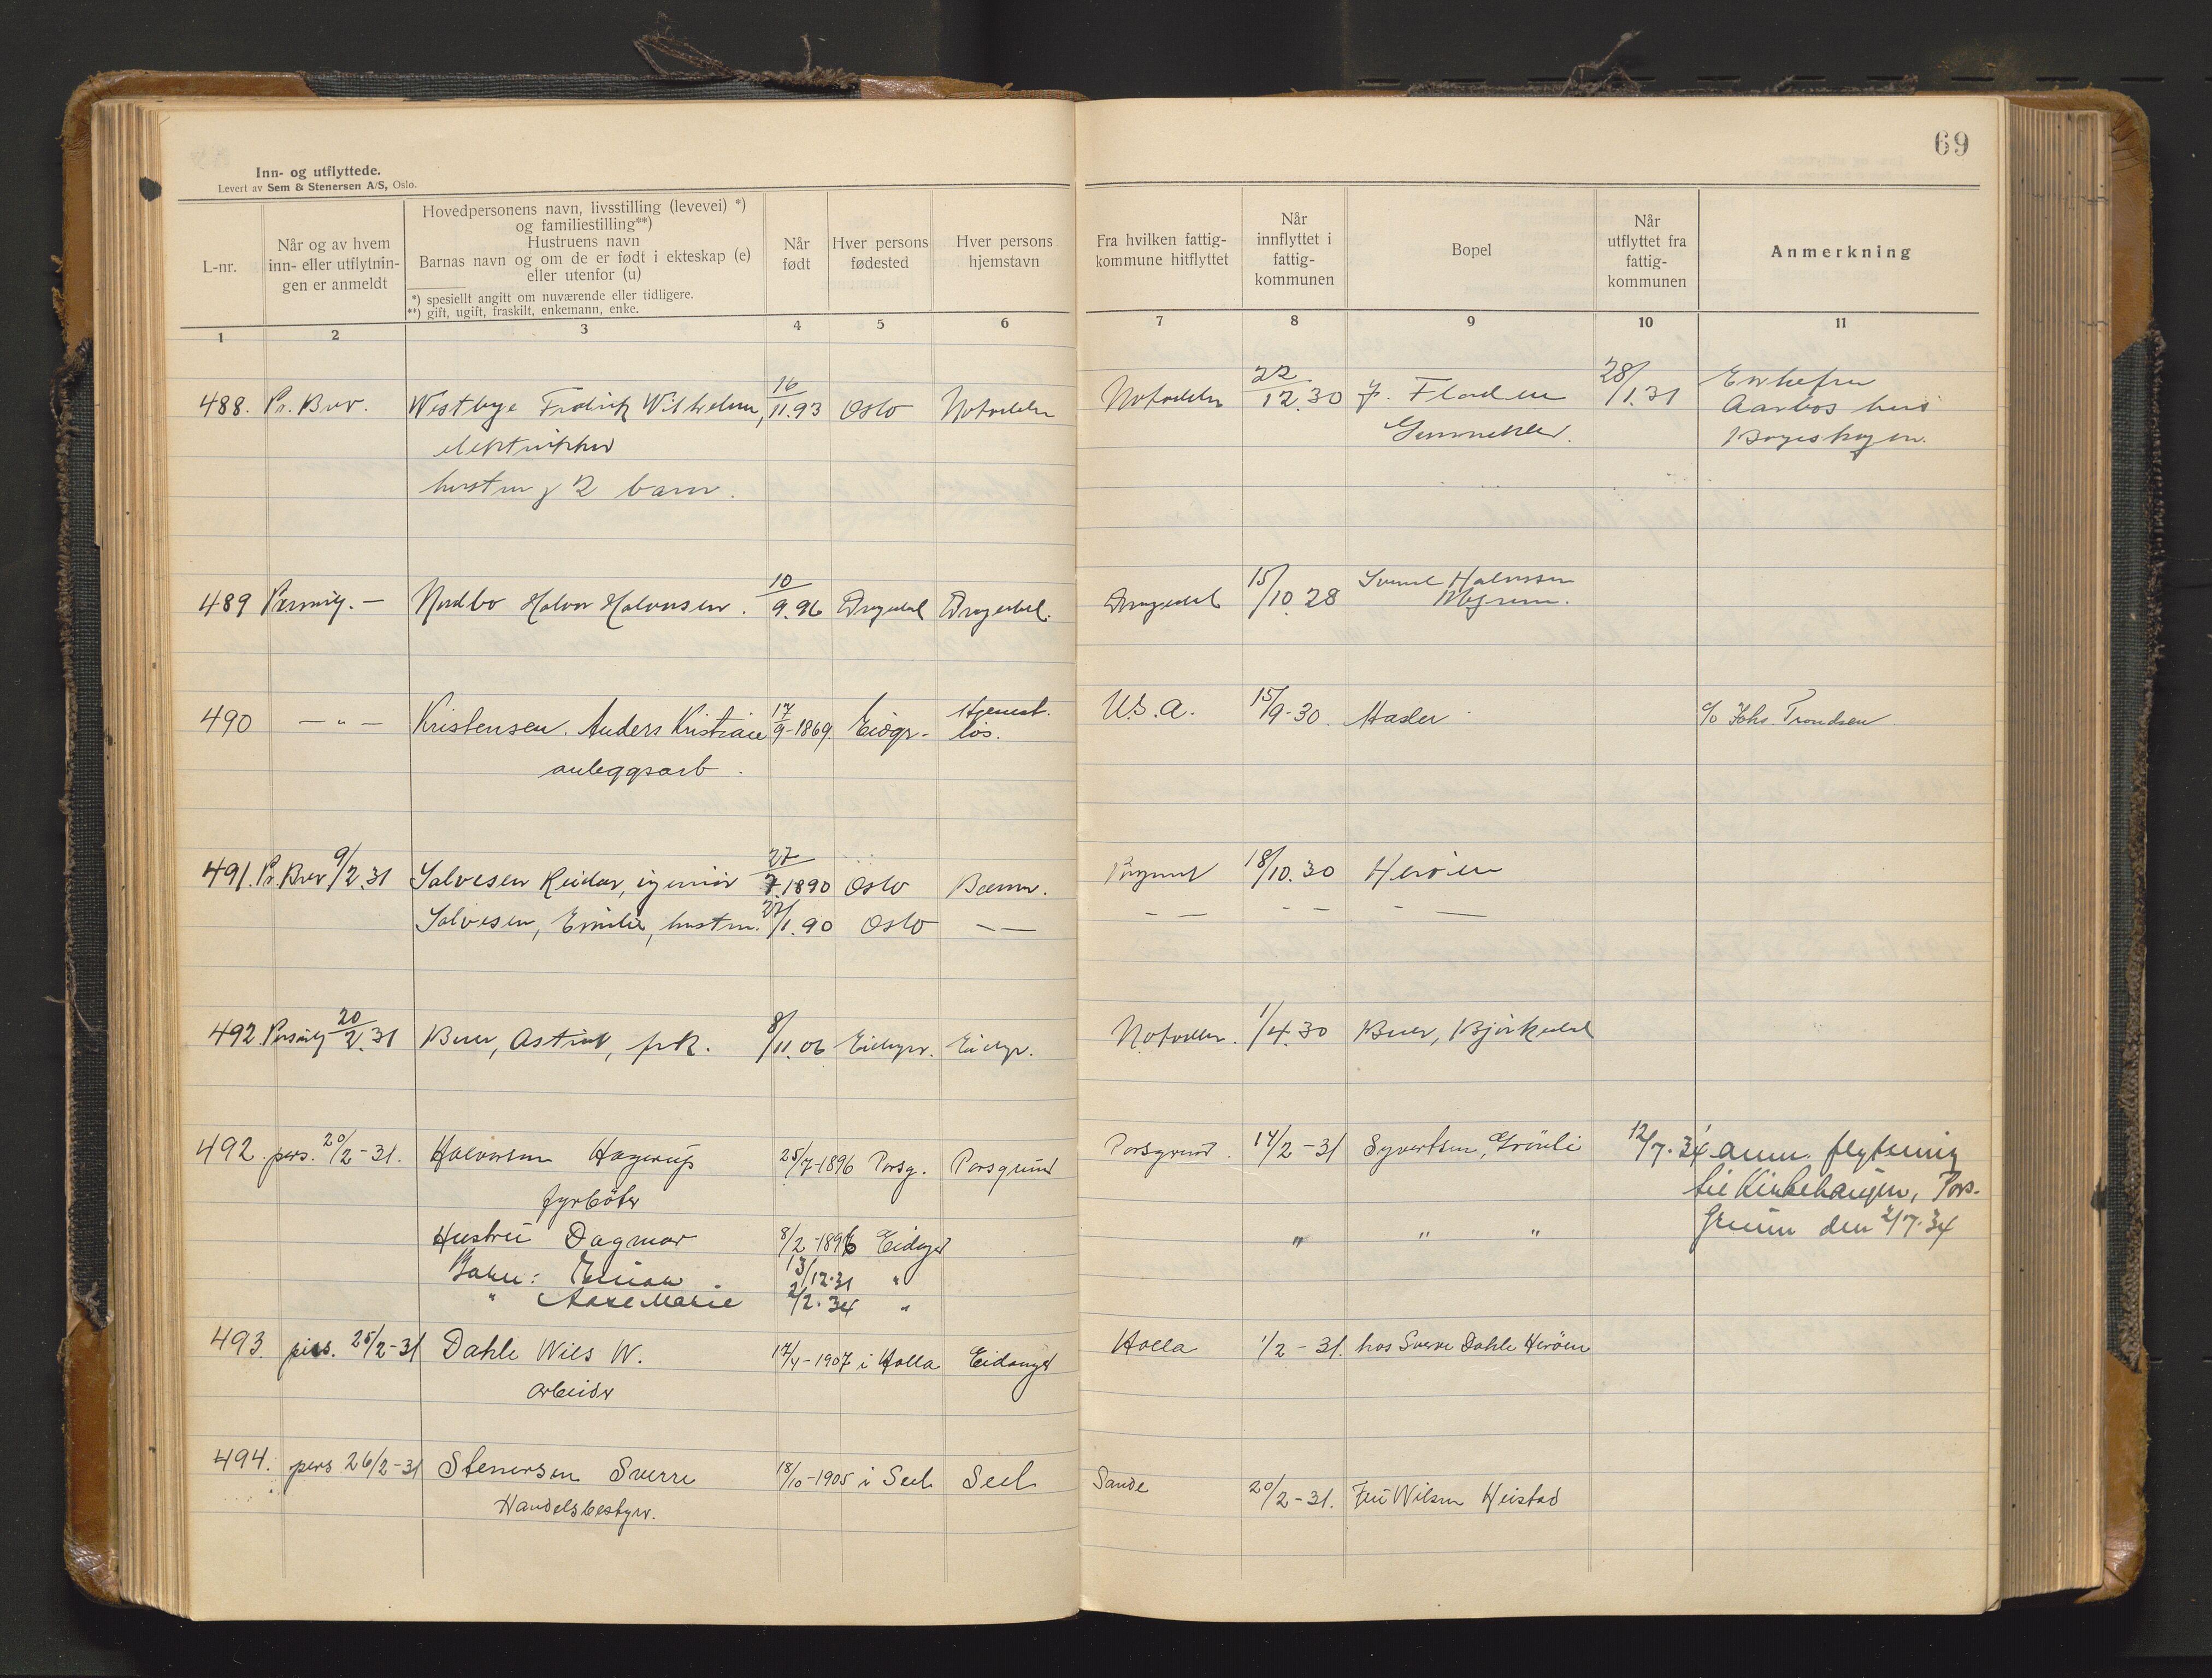 69
Inn- og utflyttede.
Levert av Sem & Stenersen A/S, Oslo.
L-nr.
Når og av hvem
inn- eller utflytnin-
gen er anmeldt
Hovedpersonens navn, livsstilling (levevei) *)
og familiestilling**)
Hustruens navn
Barnas navn og om de er født i ekteskap (e)
eller utenfor (u)
*) spesiellt angitt om nuværende eller tidligere.
**) gift, ugift, fraskilt, enkemann, enke.
Når
født
Hver persons
fødested
Hver persons
hjemstavn
Fra hvilken fattig-
kommune hitflyttet
Når
innflyttet i
fattig-
kommunen
Bopel
Når
utflyttet fra
fattig-
kommunen
Anmerkning
1 2 3 4 5 6 7 8 9 10 11
488. Pr. Brev. Westbye Fredrik Wilhelm, 16/11.93 Oslo Notodden Notodden 22/12.30 28/1.31
elektriker Aarbos hus
hustru & 2 barn.
489 Personlig. — Nordbo Halvor Halvorsen. 10/9.96 Drangedal Drangedal. Drangedal 15/10.28 Halvorsen
490 — " — Kristensen. Anders Kristian 17/9-1869. Eidgr- Hjemst. løs. U.S.A. 15/9-30. c/o Johs. Trondsen
anleggsarb.
491. Pr. Brev 9/2.31 Salvesen Reidar, ingeniør 27/7.1890 Oslo Bærum. Porsgrund 18/10.30 Herøen
Salvesen, Emilie, hustru. 27/1.90 Oslo — — — — — — — —
492. Personlig 20/2.31 Buer, Astrid, frk. 8/11.06 Eidngr. Eidngr. Notodden. 1/4.30 Buer, Bjørkedal
492. pers. 20/2-31. Halvorsen Hagerup 25/7-1896 Porsg. Porsgrund Porsgrund. 14/2-31 Syvertsen, Grönli 12/7.34 anm. flytning
fyrböter til Kirkehaugen, Pors-
Hustru Dagmar 8/2-1896 Eidanger " " " grunn den 2/7.34
Barn: 13/12.31 "
" Aase Marie 2/2.34 "
493. pers. 25/2-31 Dahle Nils W. 17/4-1907 i Holla Eidanger Holla 1/2-31. hos Sverre Dahle Heröen
arbeider
494. pers 26/2-31 Stenersen Sverre 18/10-1905 i Sem Sem Sande 20/2-31. Nilsen Heistad
Handelsbestyrer.